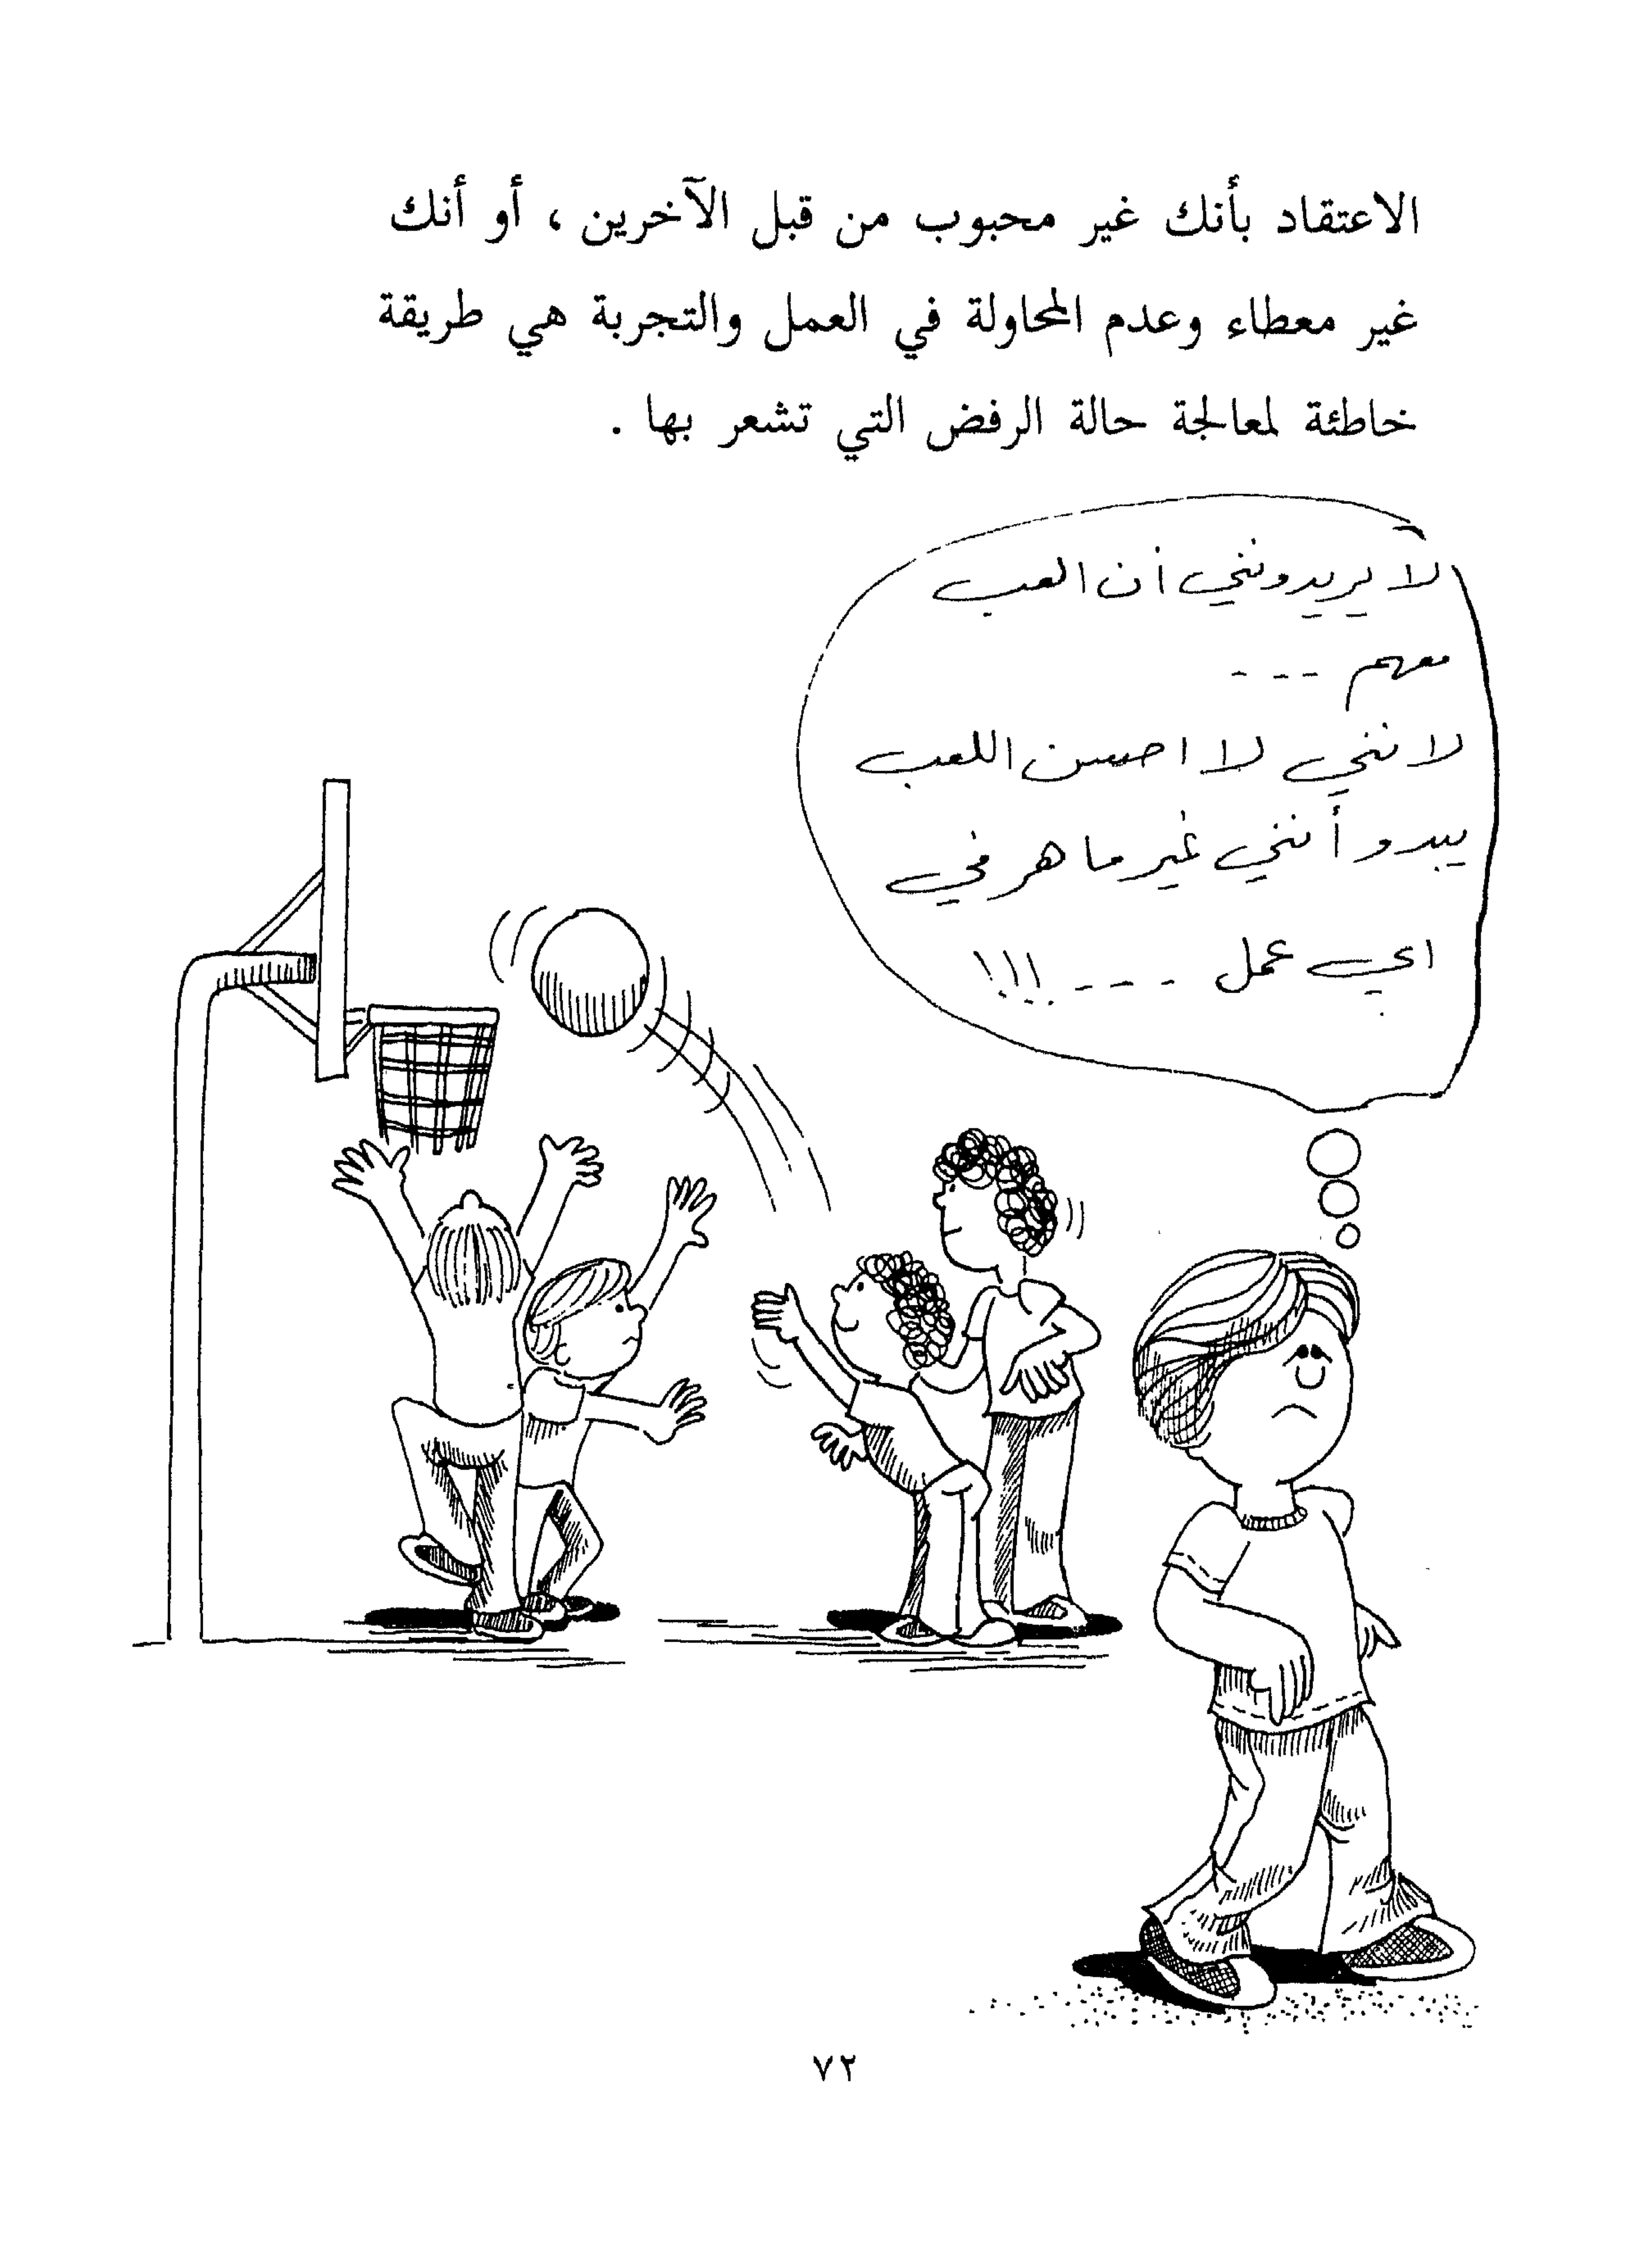 الاعتقاد بأنك غير محبوب من قبل الآخرين ، أو أنك
غير معطاء وعدم المحاولة في العمل والتجربة هي طريقة
خاطئة لمعالجة حالة الرفض التي تشعر بها .
لا يريدونني أن العب
معهم - - -
لانني لا احسن اللعب
يبدو أنني غير ماهر في
اي عمل - - - !!!
٧٢